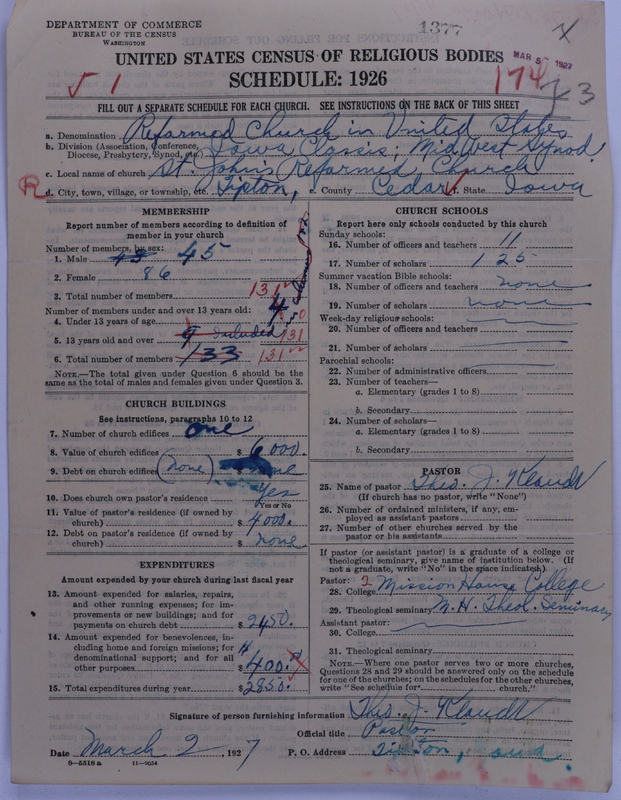 DEPARTMENT OF COMMERCE
BUREAU OF THE CENSUS
WASHINGTON
1377
MAR 5 1927
UNITED STATES CENSUS OF RELIGIOUS BODIES
SCHEDULE: 1926
√ 1
174
3
FILL OUT A SEPARATE SCHEDULE FOR EACH CHURCH. SEE INSTRUCTIONS ON THE BACK OF THIS SHEET
a. Denomination Reformed Church in United States
b. Division (Association, Conference, Diocese, Presbytery, Synod, etc.) Iowa Classis; Midwest Synod
c. Local name of church St. John's Reformed Church
R
d. City, town, village, or township, etc. Tipton, e. County Cedar f. State Iowa
MEMBERSHIP
Report number of members according to definition of
member in your church
Number of members, by sex:
1. Male 45
2. Female 86
3. Total number of members 131
Number of members under and over 13 years old:
4. Under 13 years of age
5. 13 years old and over 9 included 131
6. Total number of members 133 131
NOTE.—The total given under Question 6 should be
same as the total of males and females given under Question 3.
CHURCH BUILDINGS
See instructions, paragraphs 10 to 12
7. Number of church edifices one
8. Value of church edifices $ 6000.
9. Debt on church edifices (none) $ none
10. Does church own pastor's residence Yes
Yes or No
11. Value of pastor's residence (if owned by
church) $ 4000.
12. Debt on pastor's residence (if owned by
church) $ none
EXPENDITURES
Amount expended by your church during last fiscal year
13. Amount expended for salaries, repairs,
and other running expenses; for im-
provements or new buildings; and for
payments on church debt $ 2450.
14. Amount expended for benevolences, in-
cluding home and foreign missions; for
denominational support; and for all
other purposes $ 400.
15. Total expenditures during year $ 2850.
CHURCH SCHOOLS
Report here only schools conducted by this church
Sunday schools:
16. Number of officers and teachers 11
17. Number of scholars 125
Summer vacation Bible schools:
18. Number of officers and teachers none
19. Number of scholars none
Week-day religious schools:
20. Number of officers and teachers
21. Number of scholars
Parochial schools:
22. Number of administrative officers
23. Number of teachers—
a. Elementary (grades 1 to 8)
b. Secondary
24. Number of scholars—
a. Elementary (grades 1 to 8)
b. Secondary
PASTOR
25. Name of pastor Theo. J. Klaudt
(If church has no pastor, write "None")
26. Number of ordained ministers, if any, em-
ployed as assistant pastors
27. Number of other churches served by the
pastor or his assistants
If pastor (or assistant pastor) is a graduate of a college or
theological seminary, give name of institution below. (If
not a graduate, write "No" in the space indicated.)
Pastor: 2
28. College Mission House College
29. Theological seminary M. H. Theol. Seminary
Assistant pastor:
30. College
31. Theological seminary
NOTE.—Where one pastor serves two or more churches,
Questions 28 and 29 should be answered only on the schedule
for one of the churches; on the schedules for the other churches,
write "See schedule for church."
Signature of person furnishing information Theo. J. Klaudt
Official title Pastor
Date March 2, 1927 P. O. Address Tipton, Iowa.
8—5518 a 11—9054